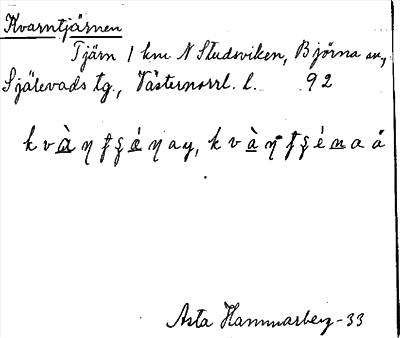 Kvarntjärnen
Tjärn 1 km N Studsviken, Björna sn,
Själevads tg., Västernorrl. l. 92
Asta Hammarberg -33